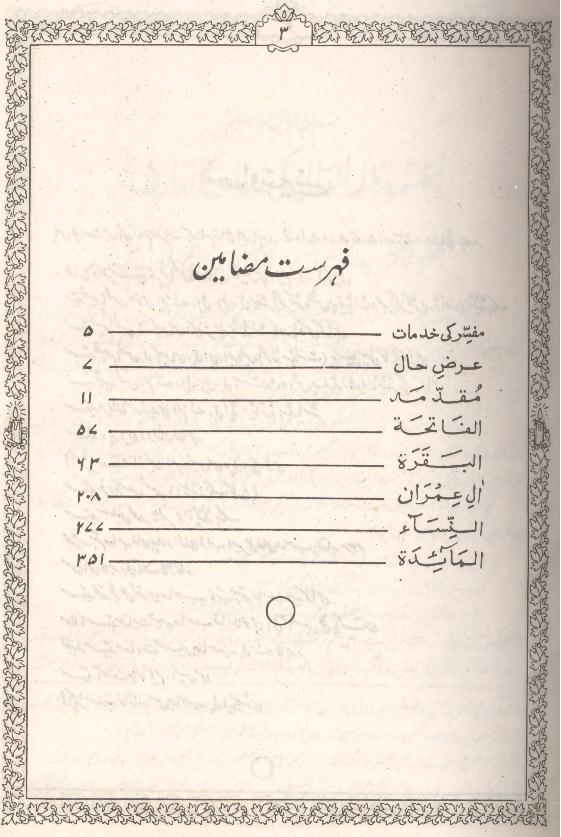 ۳
فہرست مضامین
مفسّر کی خدمات ۵
عرضِ حال ۷
مُقدّمہ ۱۱
الفَاتحَة ۵۷
البَقَرَة ۶۳
اٰلِ عِمْرَان ۲۰۸
النِّسَآء ۲۷۷
المَآئِدَة ۳۵۱